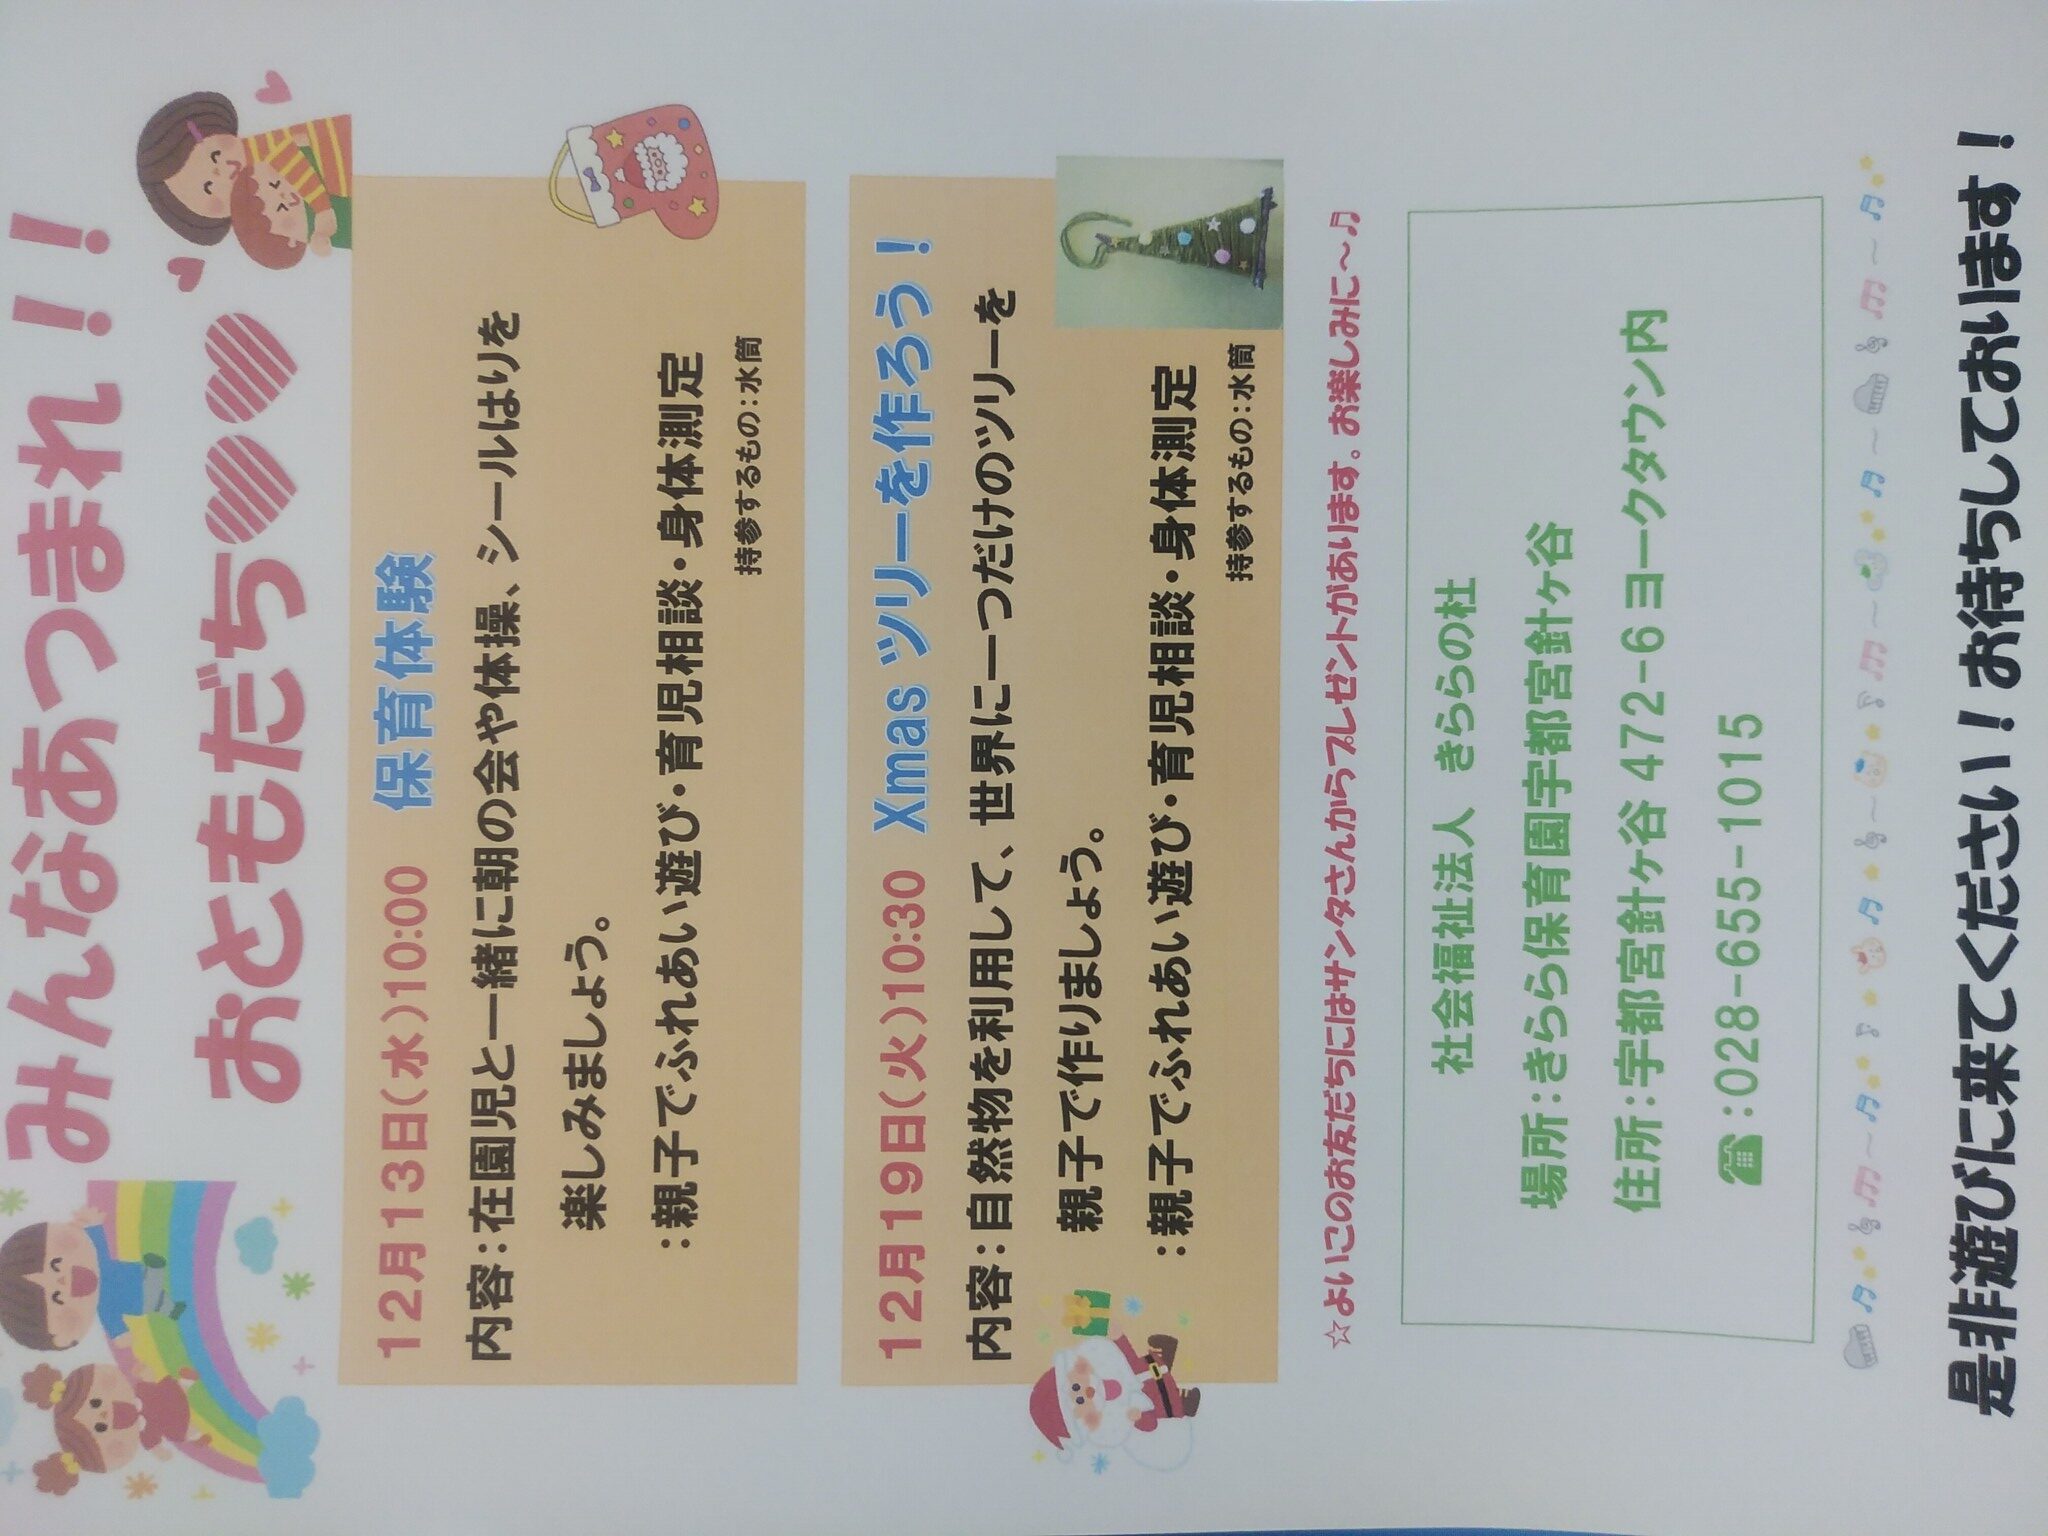 みんなあつまれ！！
おともだち
12月13日（水）10:00　保育体験
内容：在園児と一緒に朝の会や体操、シールはりを
楽しみましょう。
：親子でふれあい遊び・育児相談・身体測定
持参するもの：水筒
12月19日（火）10:30　Xmas ツリーを作ろう！
内容：自然物を利用して、世界に一つだけのツリーを
親子で作りましょう。
：親子でふれあい遊び・育児相談・身体測定
持参するもの：水筒
☆よいこのお友だちにはサンタさんからプレゼントがあります。お楽しみに～♫
社会福祉法人　きららの杜
場所：きらら保育園宇都宮針ヶ谷
住所：宇都宮針ヶ谷 472-6 ヨークタウン内
☎：028-655-1015
是非遊びに来てください！お待ちしております！